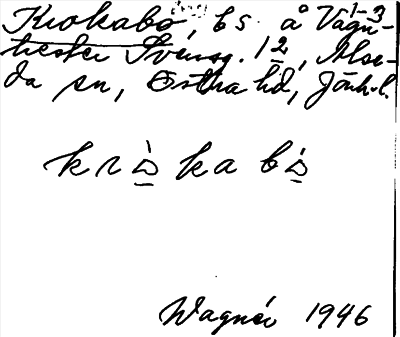 Krokabo, bs. å Vagn-
hester Svensg. 1 2 1-3, Alse-
da sn, Östra hd, Jönk. l.
kròkabò
Wagnér 1946